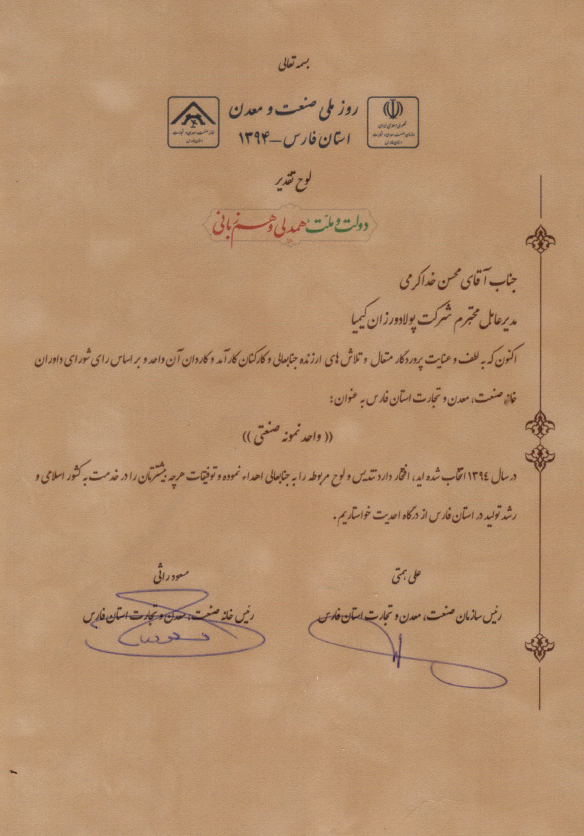 بسمه تعالی
روز ملی صنعت و معدن
استان فارس – ۱۳۹۴
لوح تقدیر
دولت و ملت، همدلی و هم‌زبانی
جناب آقای محسن خداکرمی
مدیرعامل محترم شرکت پولادورزان کیمیا
اکنون که به لطف و عنایت پروردگار متعال و تلاش های ارزنده جنابعالی و کارکنان کارآمد و کاردان آن واحد و بر اساس رای شورای داوران
خانه صنعت، معدن و تجارت استان فارس به عنوان:
(( واحد نمونه صنعتی ))
در سال ۱۳۹۴ انتخاب شده اید، افتخار دارد تندیس و لوح مربوطه را به جنابعالی اهداء نموده و توفیقات هرچه بیشترتان را در خدمت به کشور اسلامی و
رشد تولید در استان فارس از درگاه احدیت خواستاریم.
علی همتی
رئیس سازمان صنعت، معدن و تجارت استان فارس
مسعود راثی
رئیس خانه صنعت، معدن و تجارت استان فارس